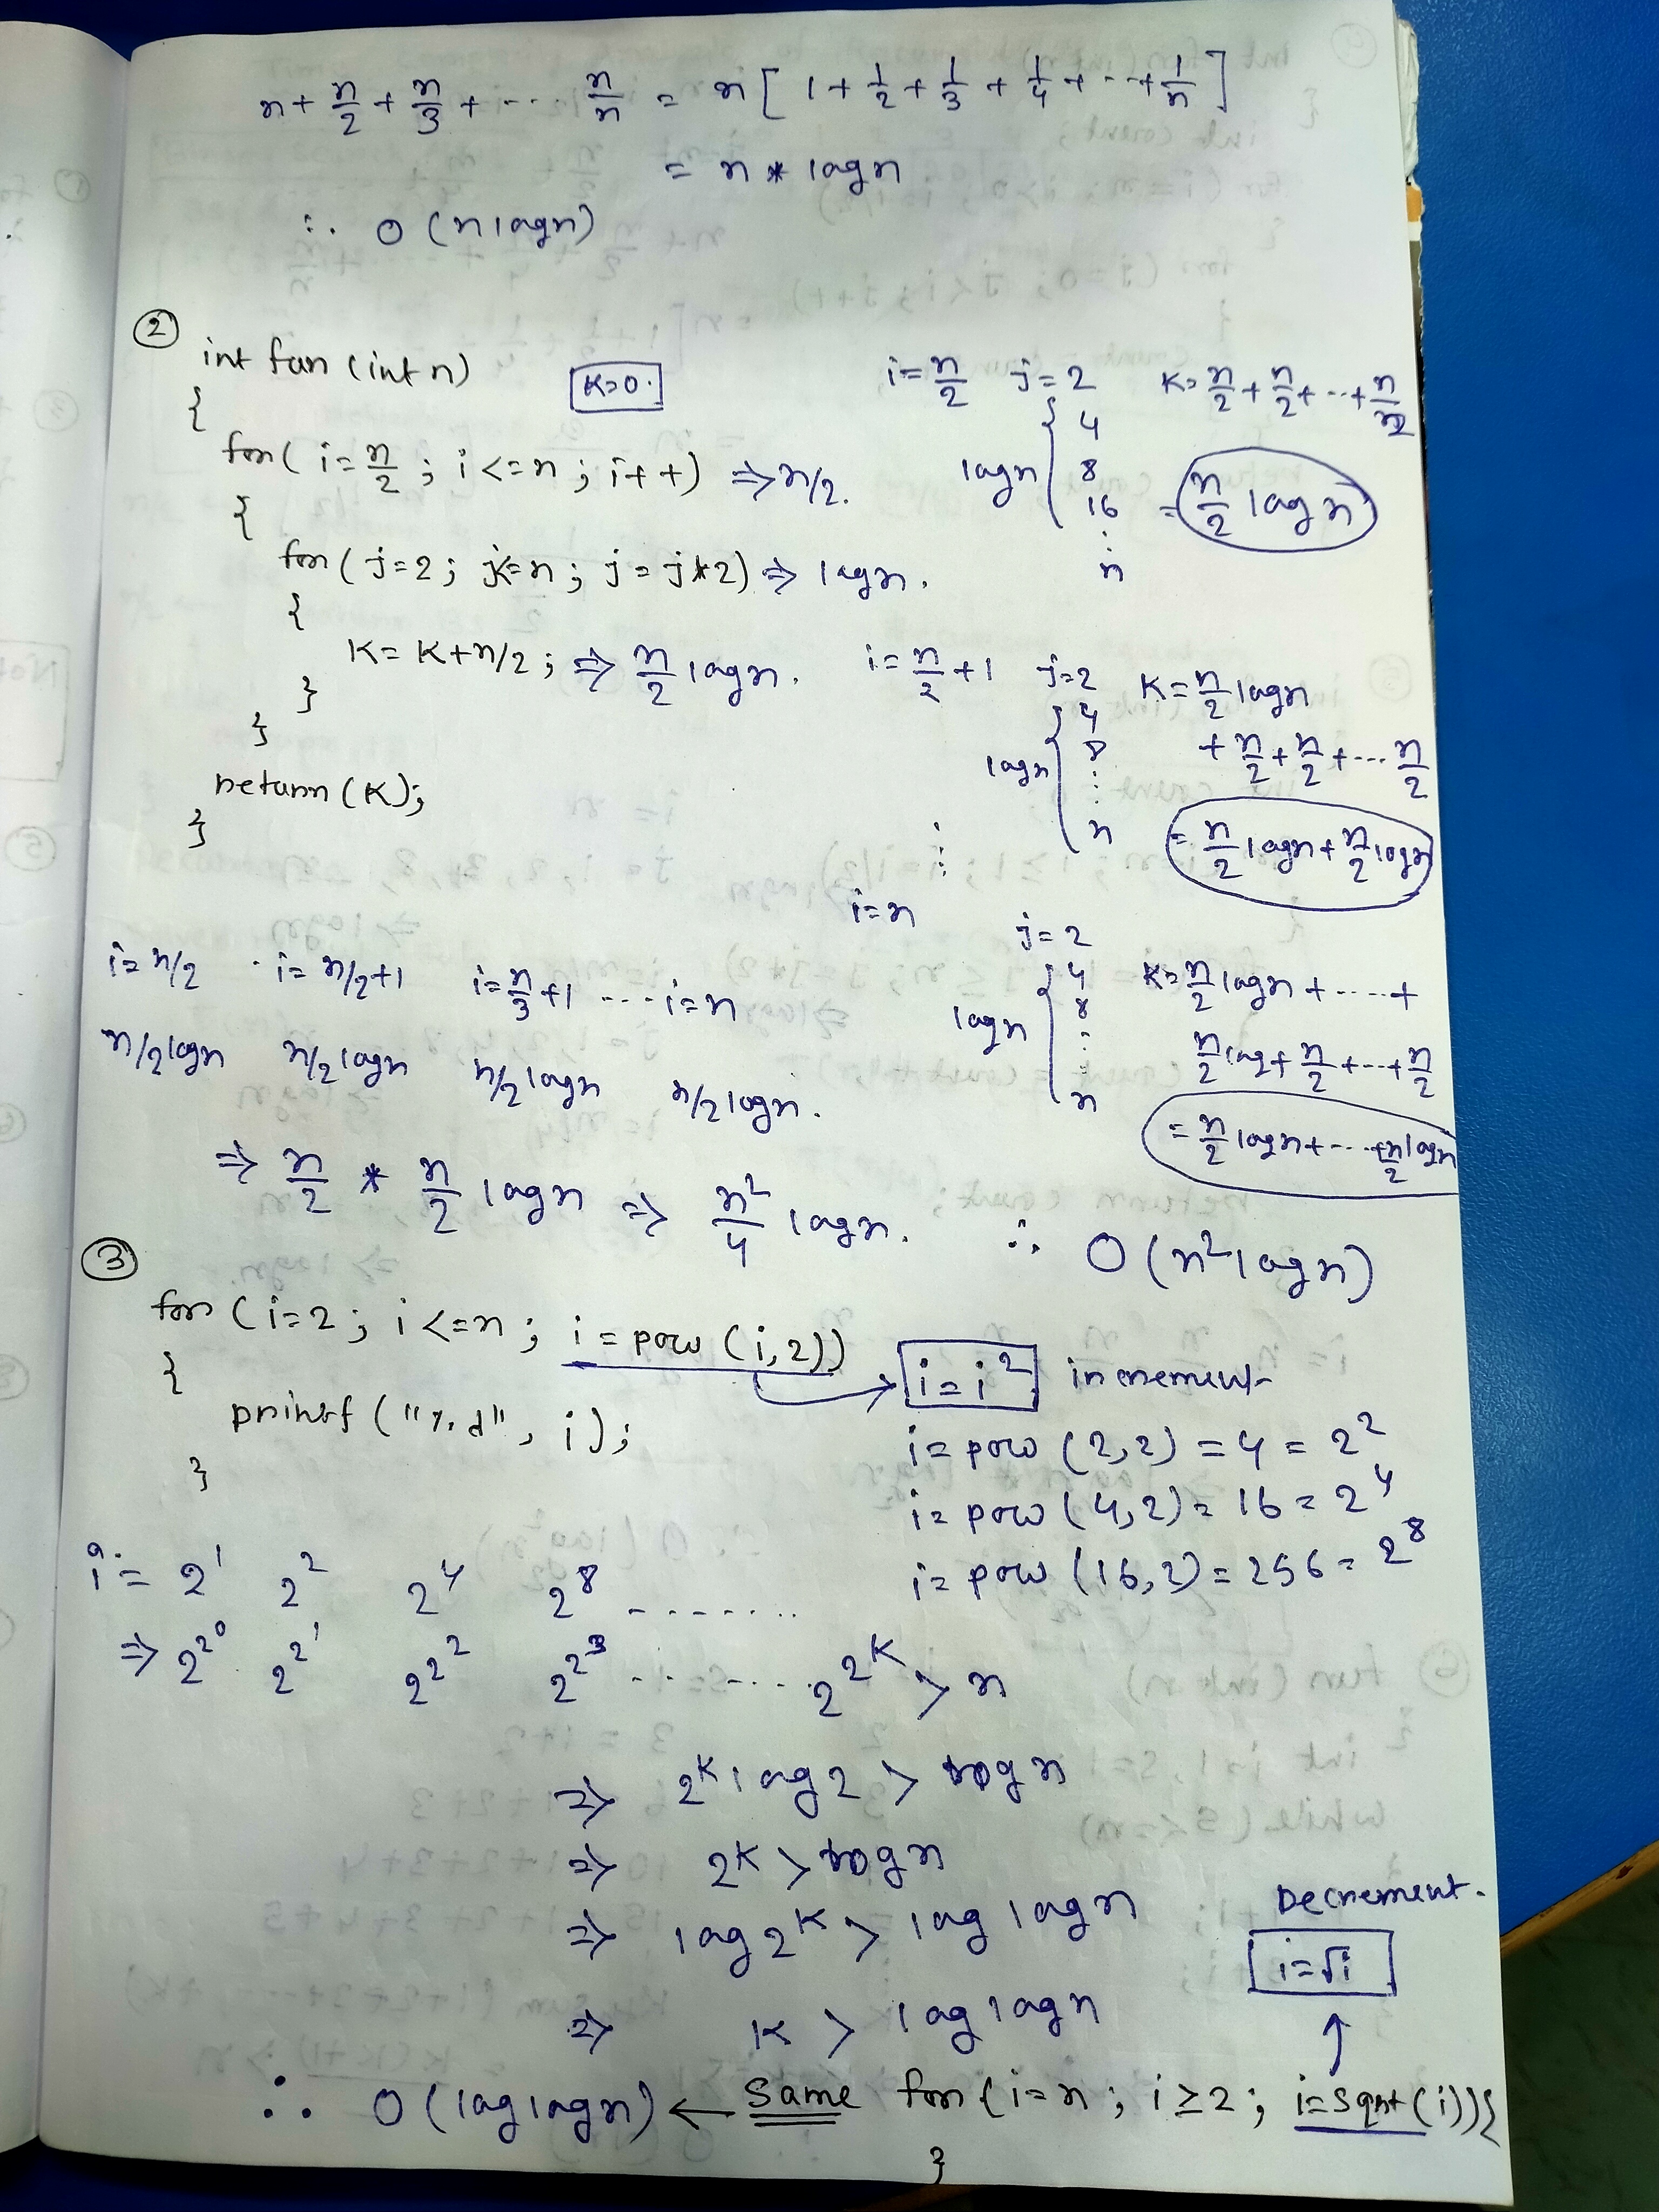 n + n/2 + n/3 + ... n/n = n [ 1 + 1/2 + 1/3 + 1/4 + ... + 1/n ]
= n * logn
∴ O (nlogn)
②
int fun (int n)
K=0.
{
for( i = n/2 ; i <= n ; i++) ⇒ n/2.
{
for( j=2 ; j<=n ; j = j*2) ⇒ logn.
{
K = K+n/2 ; ⇒ n/2 logn.
}
}
return (K);
}
i = n/2 j = 2 K = n/2 + n/2 + ... + n/2
4
logn { 8
16 = n/2 logn
⋮
n
i = n/2 + 1 j=2 K = n/2 logn
4 + n/2 + n/2 + ... n/2
logn { 8
⋮
n = n/2 logn + n/2 logn
⋮
i = n
j = 2
4 K = n/2 logn + ..... +
logn { 8 n/2 log + n/2 + ... + n/2
⋮
n = n/2 logn + ... + n/2 logn
i = n/2 i = n/2+1 i = n/3 + 1 .... i = n
n/2 logn n/2 logn n/2 logn n/2 logn.
⇒ n/2 * n/2 logn ⇒ n²/4 logn. ∴ O (n² logn)
③
for ( i=2 ; i <= n ; i = pow (i,2))
{
printf ("%d", i);
}
i = i² increment
i = pow (2,2) = 4 = 2²
i = pow (4,2) = 16 = 2⁴
i = pow (16,2) = 256 = 2⁸
i = 2¹ 2² 2⁴ 2⁸ .......
⇒ 2^2^0 2^2^1 2^2^2 2^2^3 ....... 2^2^K > n
⇒ 2^K log2 > logn
⇒ 2^K > logn
⇒ log2^K > log logn
⇒ K > log logn
Decrement.
i = √i
∴ O (log logn) ← Same for (i=n ; i ≥ 2 ; i=sqrt (i)){
}